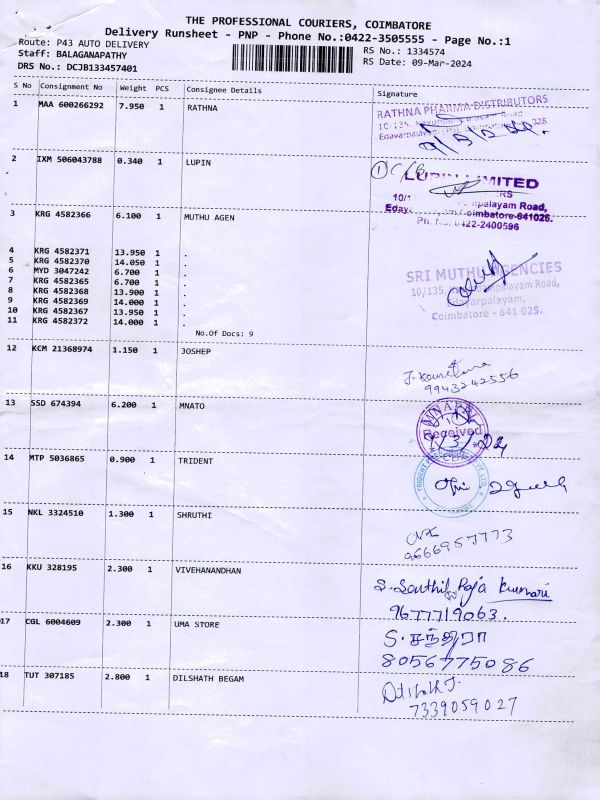 THE PROFESSIONAL COURIERS, COIMBATORE
Delivery Runsheet - PNP - Phone No.:0422-3505555 - Page No.:1
Route: P43 AUTO DELIVERY
RS No.: 1334574
Staff: BALAGANAPATHY
RS Date: 09-Mar-2024
DRS No.: DCJB133457401
S No Consignment No Weight PCS Consignee Details Signature
1 MAA 600266292 7.950 1 RATHNA
RATHNA PHARMA DISTRIBUTORS
2 IXM 506043788 0.340 1 LUPIN
LUPIN LIMITED
10/1 palayam Road,
Coimbatore-641025.
Ph. No. 0422-2400596
3 KRG 4582366 6.100 1 MUTHU AGEN
4 KRG 4582371 13.950 1 .
5 KRG 4582370 14.050 1 .
6 MYD 3047242 6.700 1 .
7 KRG 4582365 6.700 1 .
8 KRG 4582368 13.900 1 .
9 KRG 4582369 14.000 1 .
10 KRG 4582367 13.950 1 .
11 KRG 4582372 14.000 1 .
No.Of Docs: 9
SRI MUTHU AGENCIES
10/135, palayam Road,
Edayarpalayam,
Coimbatore - 641 025.
12 KCM 21368974 1.150 1 JOSHEP
9943242556
13 SSD 674394 6.200 1 MNATO
Received
14 MTP 5036865 0.900 1 TRIDENT
TRIDENT
15 NKL 3324510 1.300 1 SHRUTHI
9566957773
16 KKU 328195 2.300 1 VIVEHANANDHAN
S. Senthil Raja Kumari
9677719063.
17 CGL 6004609 2.300 1 UMA STORE
S. சந்திரா
8056775086
18 TUT 307185 2.800 1 DILSHATH BEGAM
Dilshath J.
7339059027